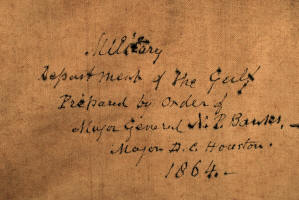 Military
Department of the Gulf
Prepared by Order of
Major General N. P. Banks, -
Major D. C. Houston.
1864. -